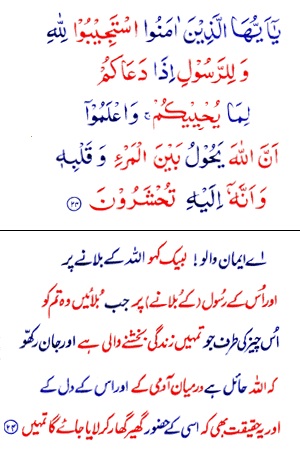 يٰۤاَيُّهَا الَّذِيْنَ اٰمَنُوا اسْتَجِيْبُوْا لِلّٰهِ
وَ لِلرَّسُوْلِ اِذَا دَعَاكُمْ
لِمَا يُحْيِيْكُمْ ۚ وَ اعْلَمُوْۤا
اَنَّ اللّٰهَ يَحُوْلُ بَيْنَ الْمَرْءِ وَ قَلْبِهٖ
وَ اَنَّهٗۤ اِلَيْهِ تُحْشَرُوْنَ ﴿۲۴﴾
اے ایمان والو! لبیک کہو اللہ کے بلانے پر
اور اُس کے رسُول (کے بُلانے) پر جب بُلائیں وہ تم کو
اُس چیز کی طرف جو تمہیں زندگی بخشنے والی ہے اور جان رکھو
کہ اللہ حائل ہے درمیان آدمی کے اور اس کے دل کے
اور یہ حقیقت بھی کہ اسی کے حضور گھیر گھار کر لایا جائے گا تمہیں ﴿۲۴﴾